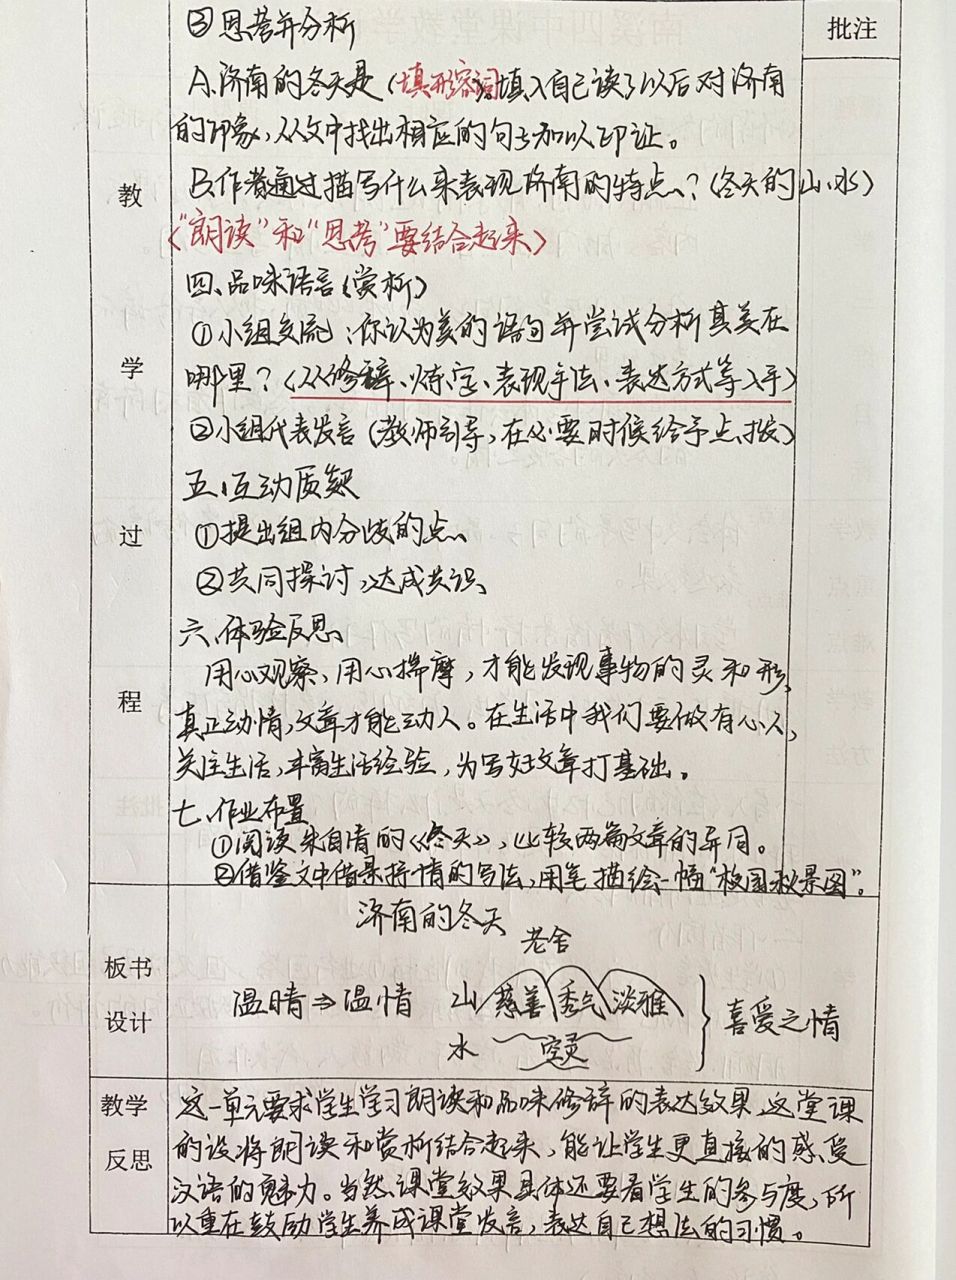 批注
③思考并分析
A、济南的冬天是(填形容词)填入自己读了以后对济南
的印象,从文中找出相应的句子加以印证。
B、作者通过描写什么来表现济南的特点?(冬天的山、水)
("朗读"和"思考"要结合起来)
四、品味语言(赏析)
①小组交流:你认为美的语句并尝试分析其美在
哪里?(从修辞、炼字、表现手法、表达方式等入手)
②小组代表发言(教师引导,在必要时候给予点拨)
五、互动质疑
①提出组内分歧的点
②共同探讨,达成共识
六、体验反思
用心观察,用心揣摩,才能发现事物的灵和形,
真正动情,文章才能动人。在生活中我们要做有心人,
关注生活,丰富生活经验,为写好文章打基础。
七、作业布置
①阅读朱自清的《冬天》,比较两篇文章的异同。
②借鉴文中借景抒情的写法,用笔描绘一幅"校园秋景图"。
教
学
过
程
板书
设计
济南的冬天
老舍
温晴⇒温情
山 慈善 秀气 淡雅
水 空灵
喜爱之情
教学
反思
这一单元要求学生学习朗读和品味修辞的表达效果,这堂课
的设将朗读和赏析结合起来,能让学生更直接的感受
汉语的魅力。当然,课堂效果具体还要看学生的参与度,所
以重在鼓励学生养成课堂发言,表达自己想法的习惯。